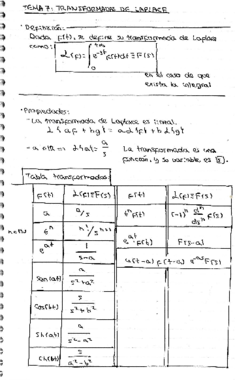 TEMA 7: TRANSFORMADAS DE LAPLACE
· Definición:
Dada f(t), se define su transformada de Laplace
como: L{f} = ∫₀^{+∞} e^{-st} f(t)dt ≡ F(s)
en el caso de que
exista la integral
· Propiedades:
- La transformada de Laplace es lineal.
L{af + bg} = aL{f} + bL{g}
- a cte ⇒ L{a} = a/s
La transformada es una
función, y su variable es s.
Tabla transformadas
f(t) L(f) ≡ F(s) f(t) L(f) ≡ F(s)
a a/s t^n f(t) (-1)^n d^n/ds^n F(s)
n∈N t^n n!/s^{n+1} e^{at}·f(t) F(s-a)
e^{at} 1/(s-a) u(t-a) f(t-a) e^{-as}F(s)
sen(at) a/(s²+a²)
cos(bt) s/(s²+b²)
sh(at) a/(s²-a²)
ch(bt)